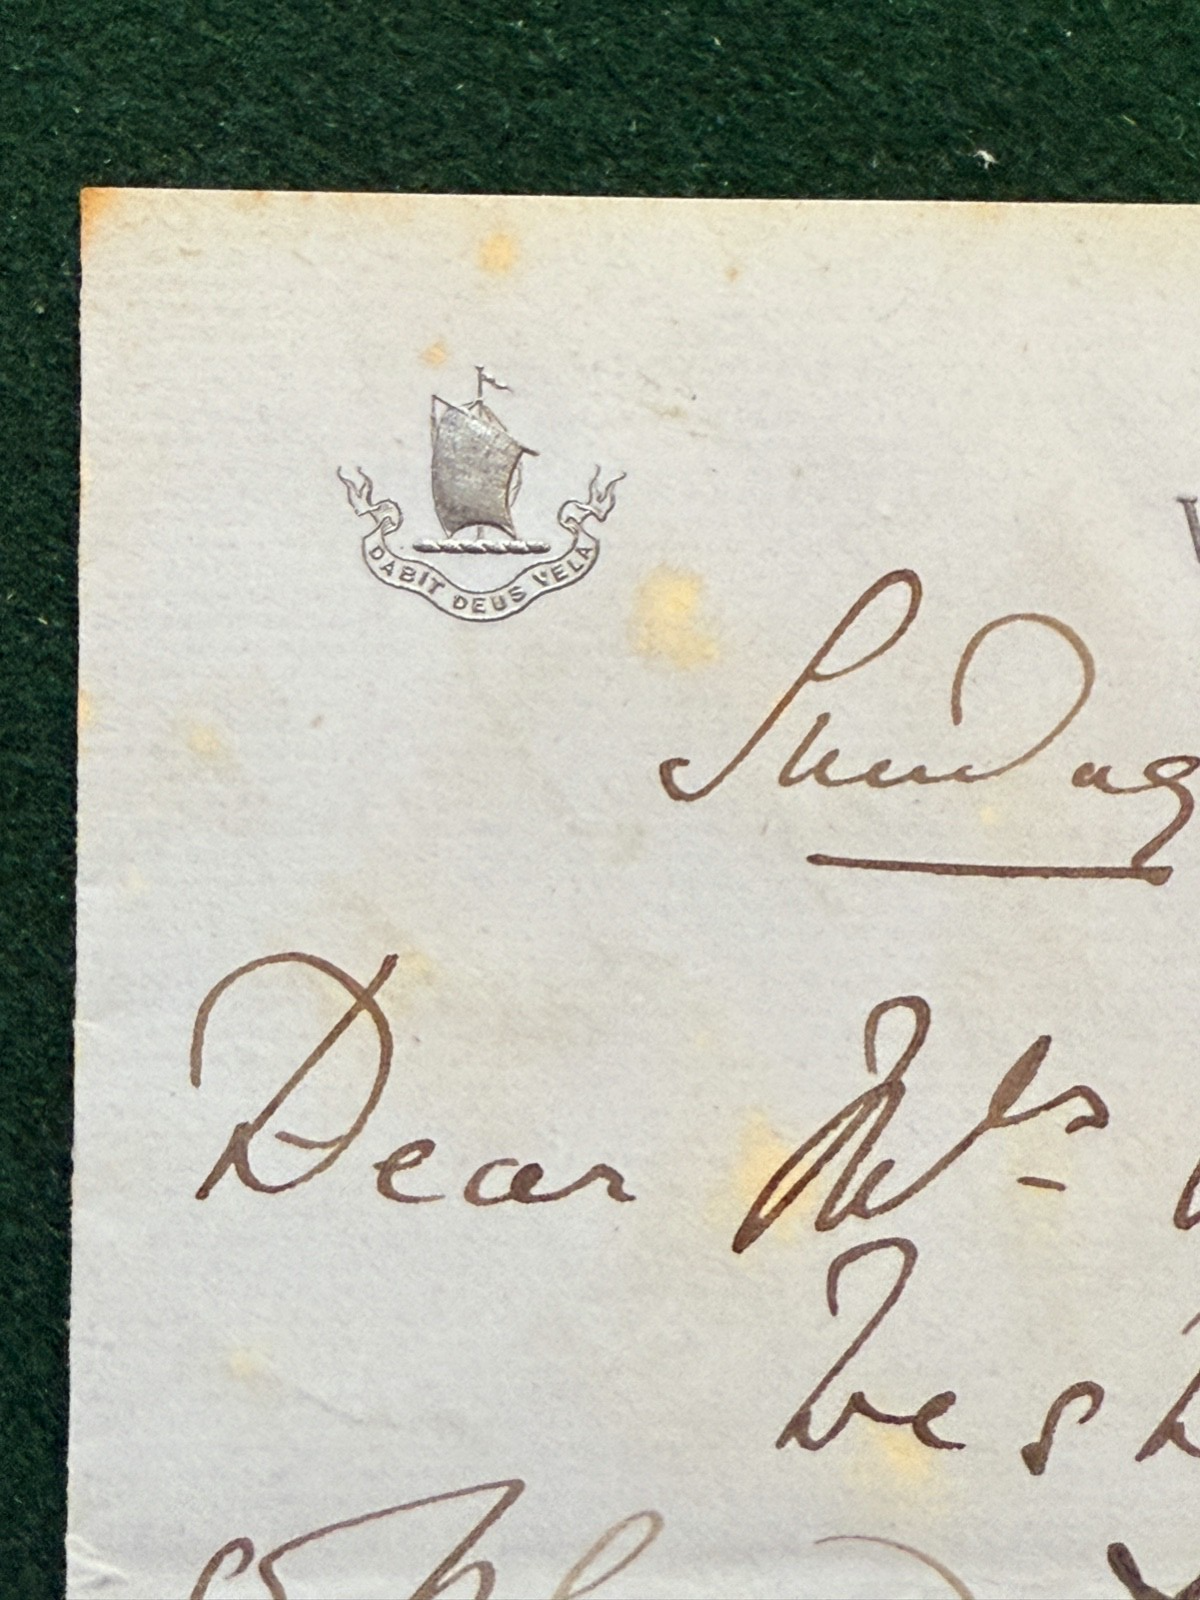 DABIT DEUS VELA
Sunday
Dear Mrs
We s